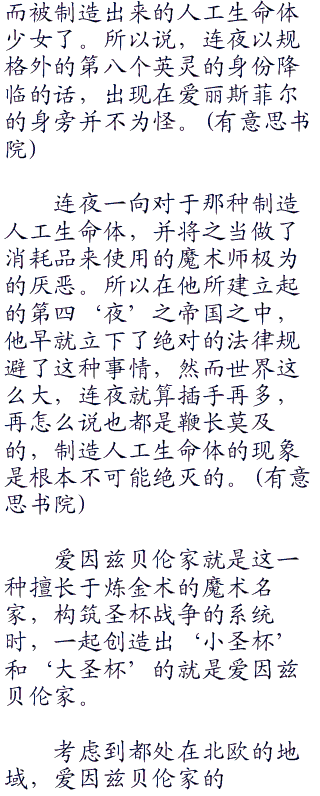 而被制造出来的人工生命体
少女了。所以说，连夜以规
格外的第八个英灵的身份降
临的话，出现在爱丽斯菲尔
的身旁并不为怪。(有意思书
院)
连夜一向对于那种制造
人工生命体，并将之当做了
消耗品来使用的魔术师极为
的厌恶。所以在他所建立起
的第四‘夜’之帝国之中，
他早就立下了绝对的法律规
避了这种事情，然而世界这
么大，连夜就算插手再多，
再怎么说也都是鞭长莫及
的，制造人工生命体的现象
是根本不可能绝灭的。(有意
思书院)
爱因兹贝伦家就是这一
种擅长于炼金术的魔术名
家，构筑圣杯战争的系统
时，一起创造出‘小圣杯’
和‘大圣杯’的就是爱因兹
贝伦家。
考虑到都处在北欧的地
域，爱因兹贝伦家的